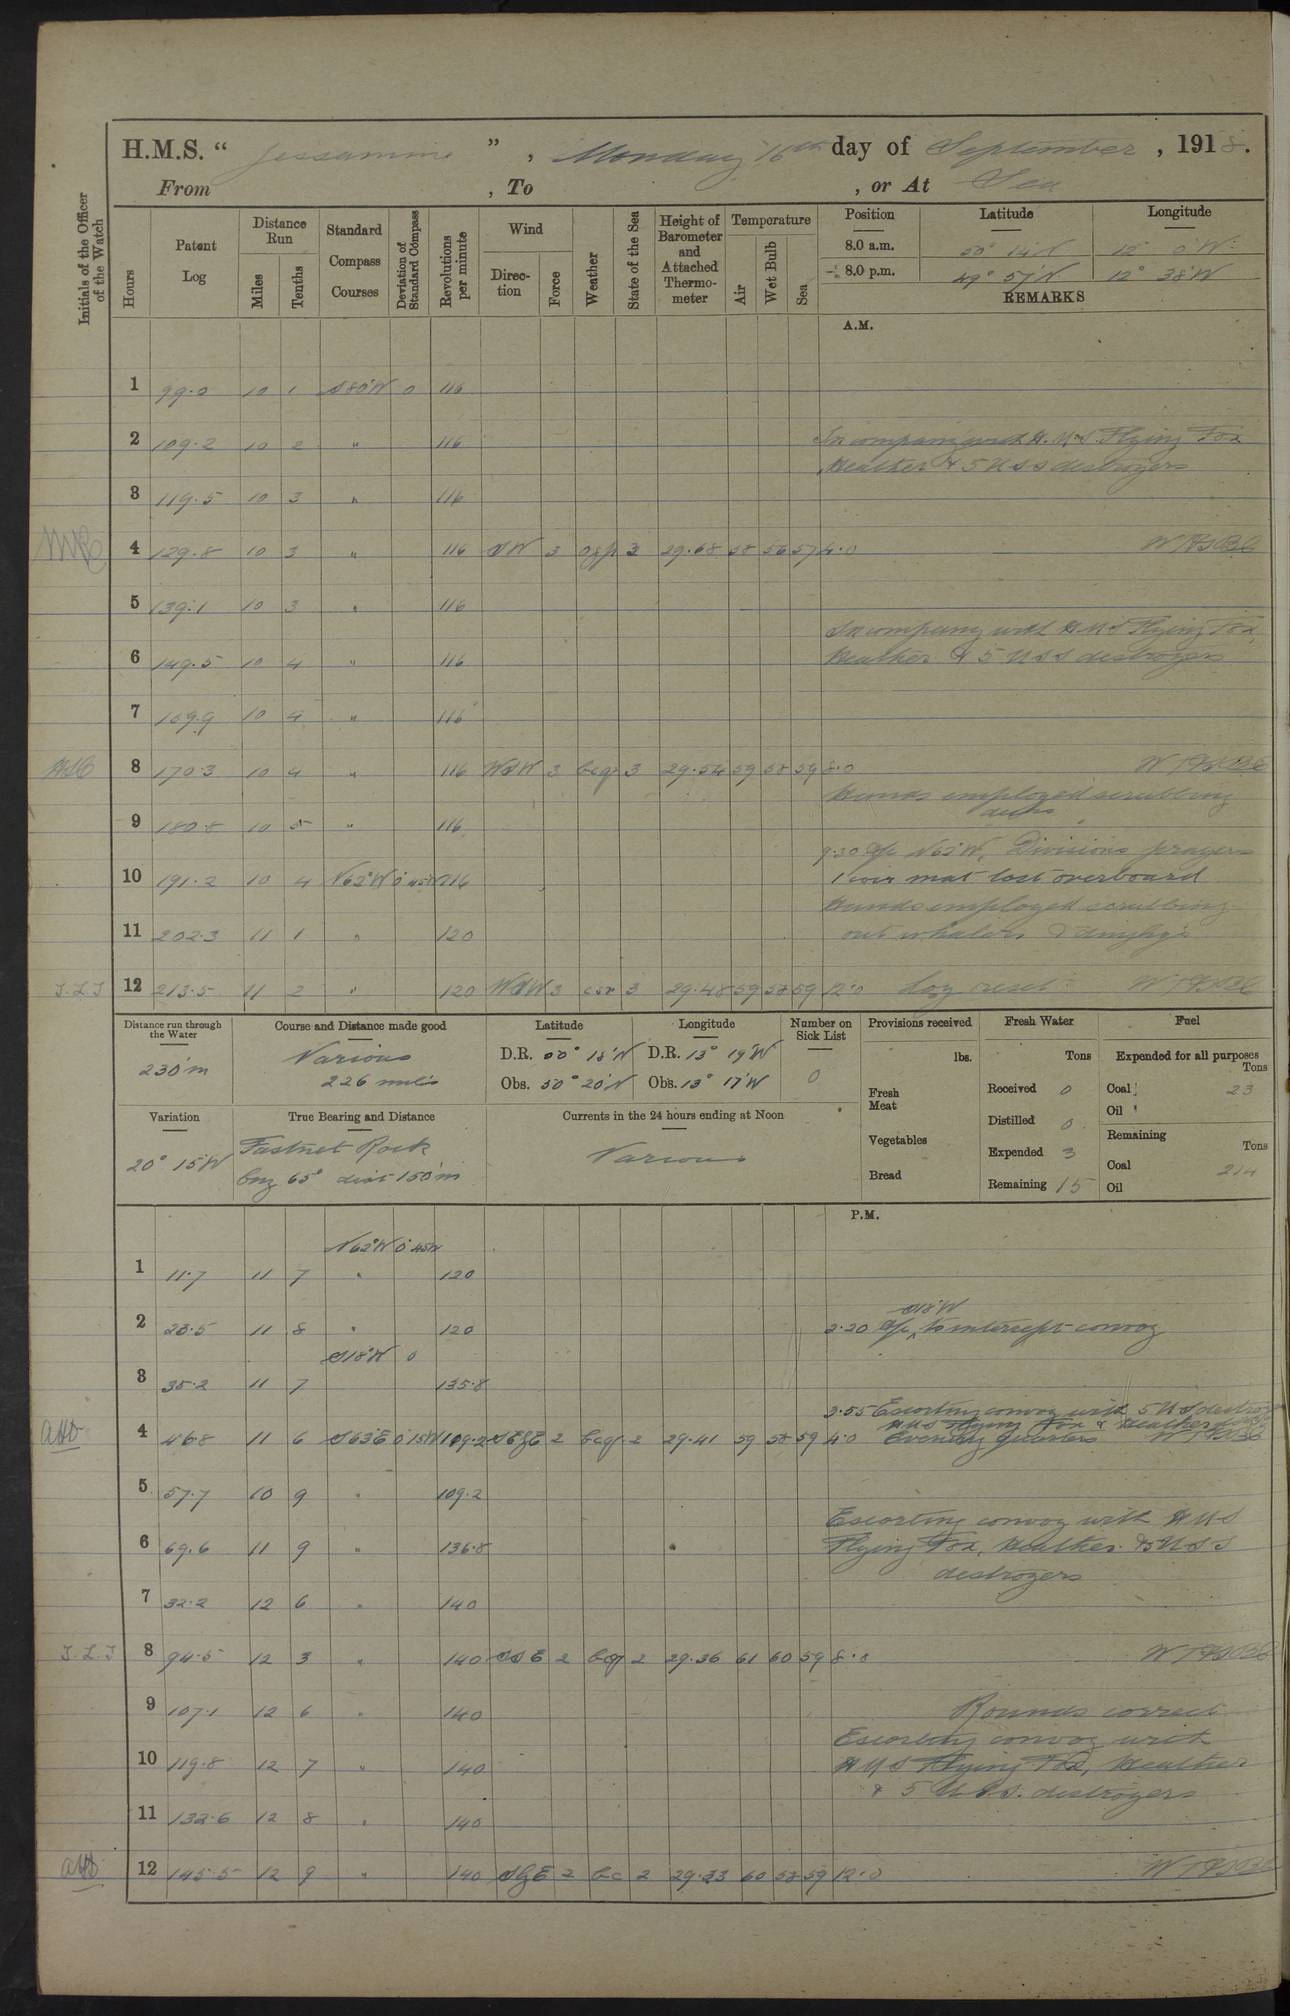 H.M.S. “ Jessamine ” , Monday 16th day of September , 1918.
From , To , or At Sea
Initials of the Officer of the Watch
Hours
Patent Log
Distance Run
Miles
Tenths
Standard Compass Courses
Deviation of Standard Compass
Revolutions per minute
Wind
Direction
Force
Weather
State of the Sea
Height of Barometer and Attached Thermometer
Temperature
Air
Wet Bulb
Sea
Position Latitude Longitude
8.0 a.m. 50° 14'N 12° 0'W
8.0 p.m. 49° 57'N 12° 38'W
REMARKS
A.M.
1 99.0 10 1 S80°W 0 116
2 109.2 10 2 " 116 In company with H.M.S. Flying Fox
Heather & 5 USS destroyers
3 119.5 10 3 " 116
4 129.8 10 3 " 116 SW 3 3 29.68 58 56 57 4.0
5 139.1 10 3 " 116
In company with HMS Flying Fox,
6 149.5 10 4 " 116 Heather & 5 USS destroyers
7 159.9 10 4 " 116
8 170.3 10 4 " 116 WSW 3 bcq 3 29.54 59 58 59 8.0
Hands employed scrubbing
decks
9 180.8 10 5 " 116
9.30 A/c N62°W, Divisions prayers
10 191.2 10 4 N62°W 0°45W 116 1 coir mat lost overboard
Hands employed scrubbing
11 202.3 11 1 " 120 out whalers & dinghys
J.L.J 12 213.5 11 2 " 120 WSW 3 3 29.48 59 58 59 12.0 Log reset
Distance run through the Water
230'm
Course and Distance made good
Various
226 miles
Latitude
D.R. 50° 18'N
Obs. 50° 20'N
Longitude
D.R. 13° 19'W
Obs. 13° 17'W
Number on Sick List
0
Provisions received
lbs.
Fresh Meat
Vegetables
Bread
Fresh Water
Tons
Received 0
Distilled 0
Expended 3
Remaining 15
Fuel
Expended for all purposes
Tons
Coal 23
Oil
Remaining
Tons
Coal 214
Oil
Variation
20° 15'W
True Bearing and Distance
Fastnet Rock
brg 65° dist 150'm
Currents in the 24 hours ending at Noon
Various
P.M.
N62°W 0°45W
1 11.7 11 7 " 120
S18°W
2 23.5 11 8 " 120 2.20 A/c to intercept convoy
S18°W 0
3 35.2 11 7 135.8
3.55 Escorting convoy with 5 US destroyers
HMS Flying Fox & Heather
4 46.8 11 6 S63°E 0°15W 109.2 SE½E 2 bcq 2 29.41 59 58 59 4.0 Evening quarters
5 57.7 10 9 " 109.2
Escorting convoy with HMS
6 69.6 11 9 " 136.8 Flying Fox, Heather & 5 USS
destroyers
7 32.2 12 6 " 140
J.L.J 8 94.5 12 3 " 140 SSE 2 bcq 2 29.36 61 60 59 8.0
9 107.1 12 6 " 140 Rounds correct
Escorting convoy with
10 119.8 12 7 " 140 HMS Flying Fox, Heather
& 5 U.S.S. destroyers
11 132.6 12 8 " 140
12 145.5 12 9 " 140 2 bc 2 29.33 60 58 59 12.0